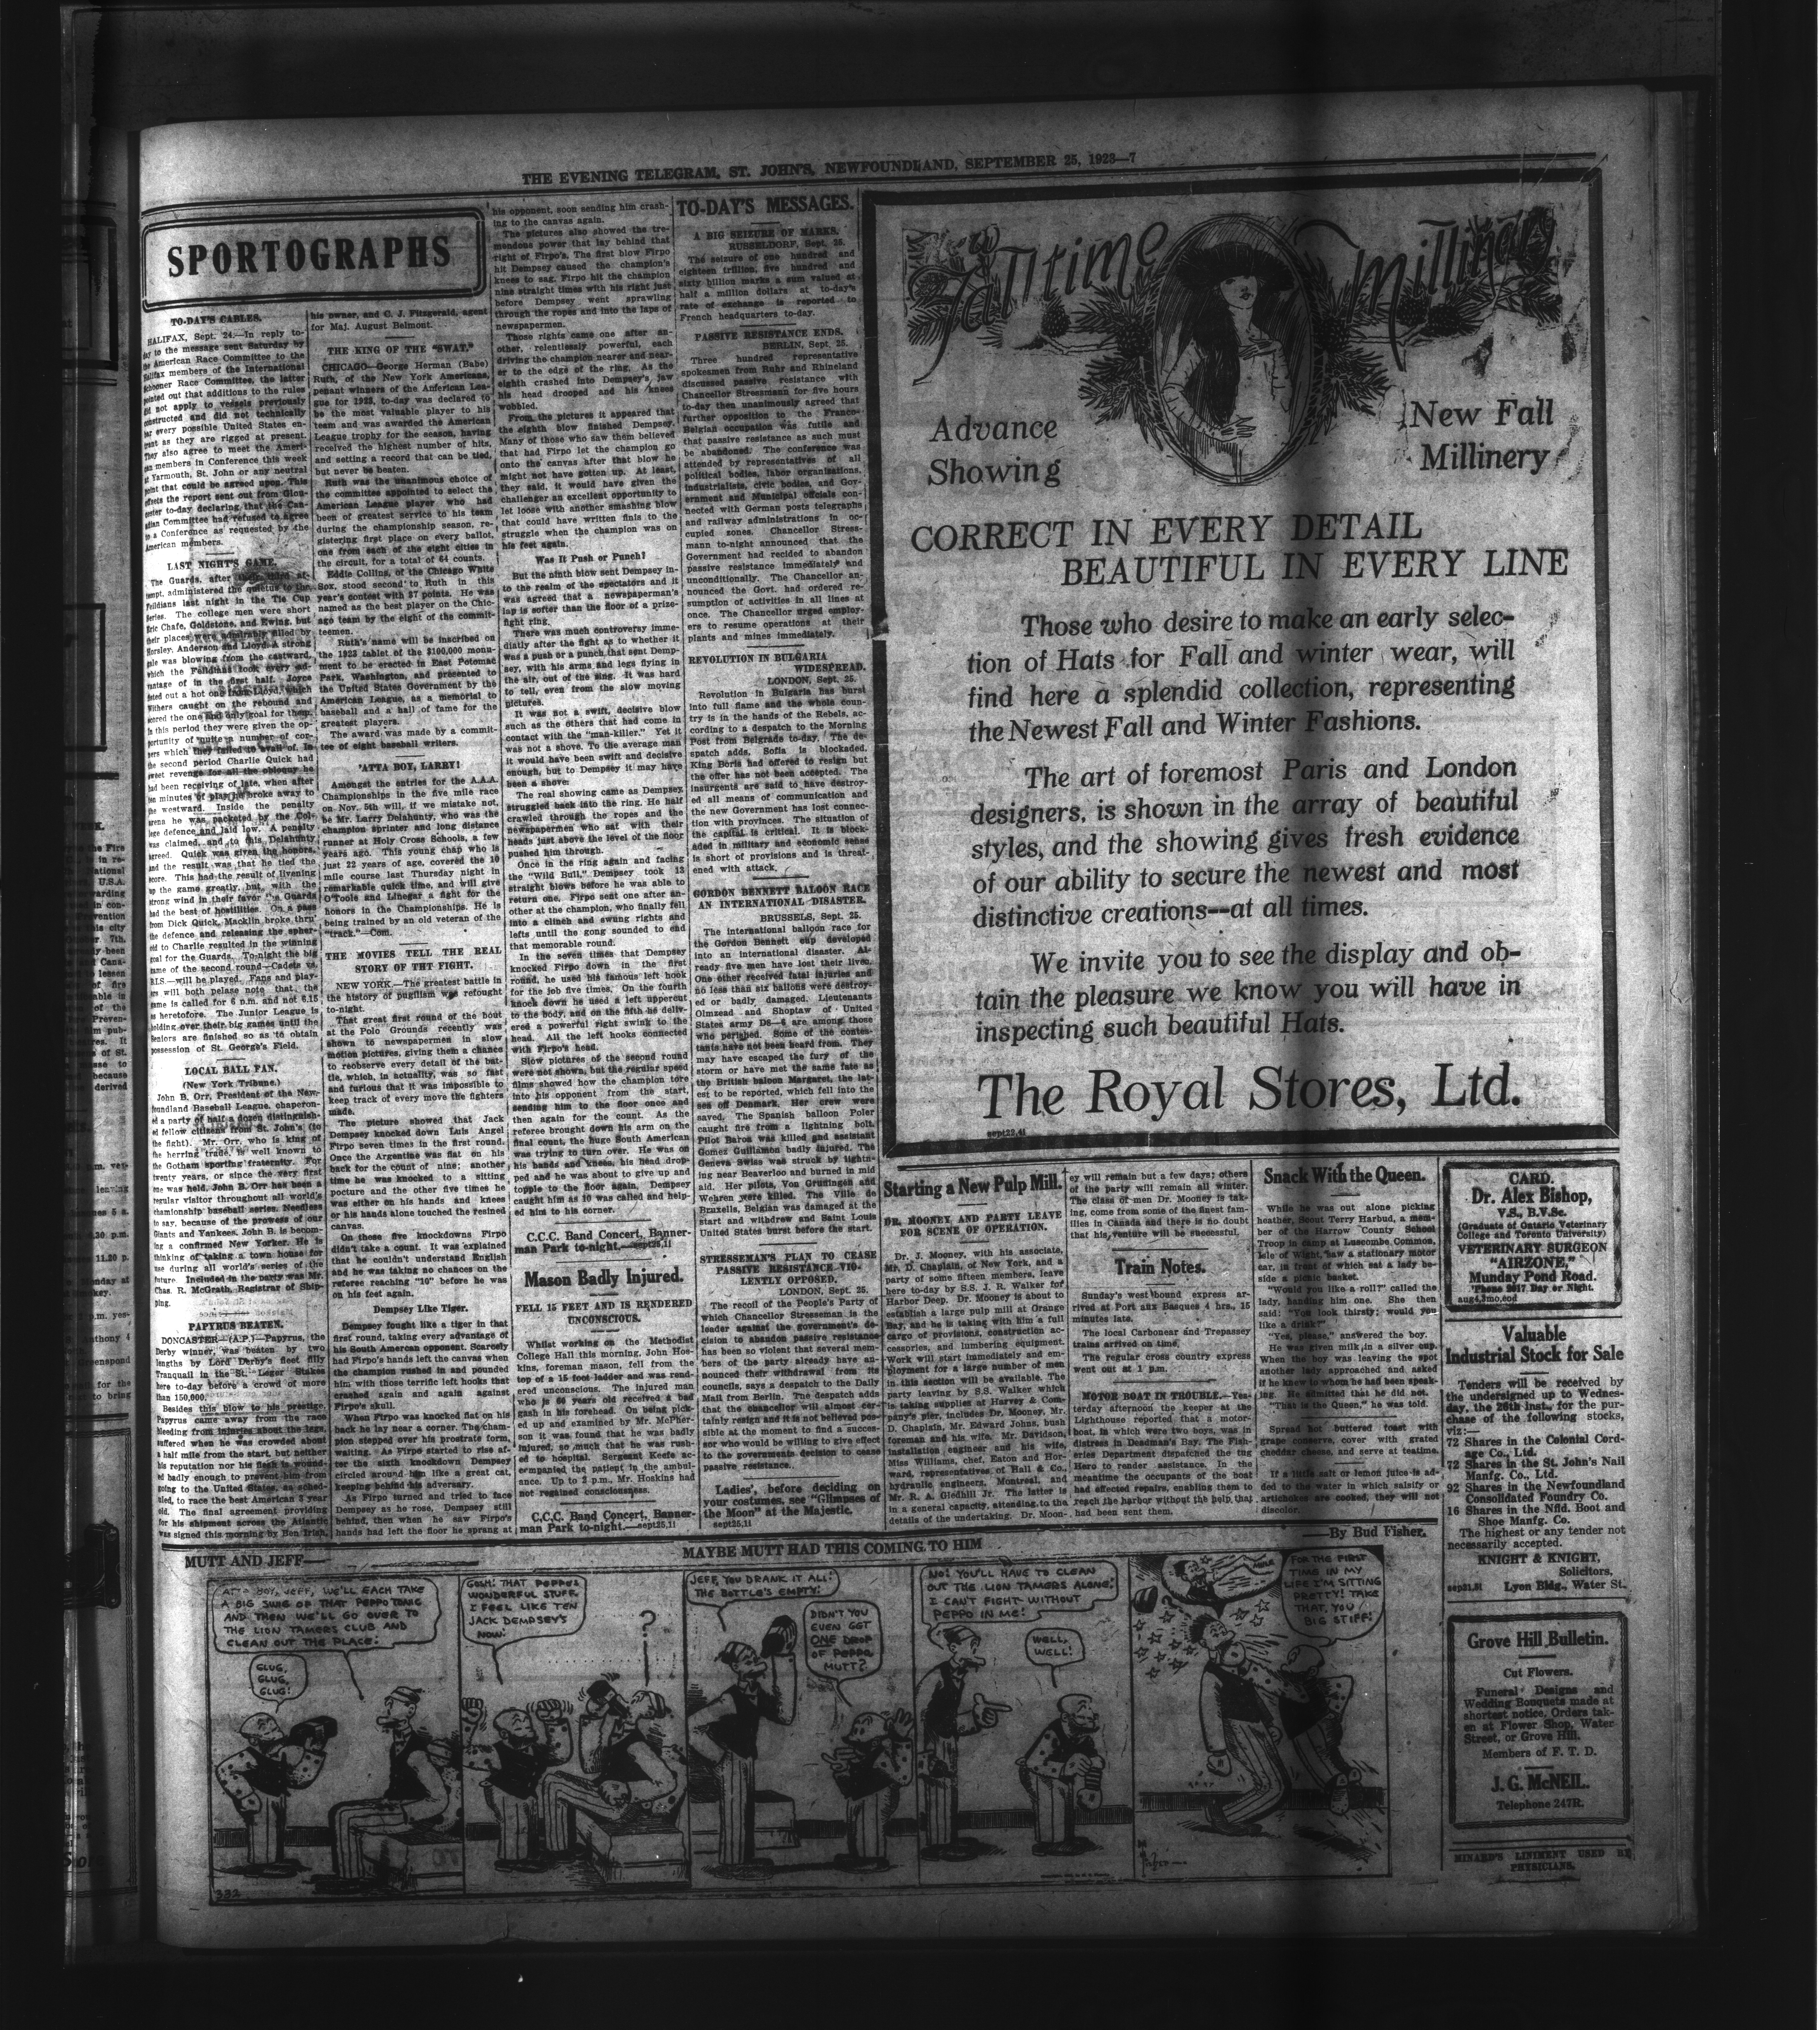 THE EVENING TELEGRAM, ST. JOHN'S, NEWFOUNDLAND, SEPTEMBER 25, 1923—7
SPORTOGRAPHS
TO-DAY'S CABLES.
HALIFAX, Sept. 24.—In reply to-
day to the message sent Saturday by
the American Race Committee to the
Halifax members of the International
Schooner Race Committee, the latter
pointed out that additions to the rules
did not apply to vessels previously
constructed and did not technically
bar every possible United States en-
trant as they are rigged at present.
They also agree to meet the Ameri-
can members in Conference this week
at Yarmouth, St. John or any neutral
point that could be agreed upon. This
offsets the report sent out from Glou-
cester to-day declaring that the Can-
adian Committee had refused to agree
to a Conference as requested by the
American members.
LAST NIGHT'S GAME.
LOCAL BALL FAN.
(New York Tribune.)
John B. Orr, President of the New-
foundland Baseball League, chaperon-
ed a party of half a dozen distinguish-
ed fellow citizens from St. John's (to
the fight). Mr. Orr, who is king of
the herring trade, is well known to
the Gotham sporting fraternity. For
twenty years, or since the very first
one was held, John B. Orr has been a
regular visitor throughout all world's
championship baseball series. Needless
to say, because of the prowess of our
Giants and Yankees, John B. is becom-
ing a confirmed New Yorker. He is
thinking of taking a town house for
use during all world's series of the
future. Included in the party was Mr.
Chas. R. McGrath, Registrar of Ship-
ping.
PAPYRUS BEATEN.
DONCASTER—(A.P.)—Papyrus, the
Derby winner, was beaten by two
lengths by Lord Derby's fleet filly
Tranquil in the St. Leger Stakes
here to-day before a crowd of more
than 150,000.
Besides this blow to his prestige,
Papyrus came away from the race
bleeding from injuries about the legs,
suffered when he was crowded about
a half mile from the start, but neither
his reputation nor his flesh is wound-
ed badly enough to prevent him from
going to the United States, as sched-
uled, to race the best American 3 year
old. The final agreement providing
for his shipment across the Atlantic
was signed this morning by Ben Irish,
his owner, and C. J. Fitzgerald, agent
for Maj. August Belmont.
THE KING OF THE "SWAT."
CHICAGO—George Herman (Babe)
Ruth, of the New York Americans,
penant winners of the American Lea-
gue for 1923, to-day was declared to
be the most valuable player to his
team and was awarded the American
League trophy for the season, having
received the highest number of hits,
and setting a record that can be tied,
but never be beaten.
Ruth was the unanimous choice of
the committee appointed to select the
American League player who had
been of greatest service to his team
during the championship season, re-
gistering first place on every ballot,
one from each of the eight cities in
the circuit, for a total of 64 counts.
Eddie Collins, of the Chicago White
Sox, stood second to Ruth in this
year's contest with 37 points. He was
named as the best player on the Chic-
ago team by the eight of the commit-
teemen.
Ruth's name will be inscribed on
the 1923 tablet of the $100,000 monu-
ment to be erected in East Potomac
Park, Washington, and presented to
the United States Government by the
American League, as a memorial to
baseball and a hall of fame for the
greatest players.
The award was made by a commit-
tee of eight baseball writers.
'ATTA BOY, LARRY!
Amongst the entries for the A.A.A.
Championships in the five mile race
on Nov. 5th will, if we mistake not,
be Mr. Larry Delahunty, who was the
champion sprinter and long distance
runner at Holy Cross Schools, a few
years ago. This young chap who is
just 22 years of age, covered the 10
mile course last Thursday night in
remarkable quick time, and will give
O'Toole and Linegar a fight for the
honors in the Championships. He is
being trained by an old veteran of the
"track."—Com.
THE MOVIES TELL THE REAL
STORY OF THT FIGHT.
NEW YORK.—The greatest battle in
the history of pugilism was refought
to-night.
That great first round of the bout
at the Polo Grounds recently was
shown to newspapermen in slow
motion pictures, giving them a chance
to reobserve every detail of the bat-
tle, which, in actuality, was so fast
and furious that it was impossible to
keep track of every move the fighters
made.
The picture showed that Jack
Dempsey knocked down Luis Angel
Firpo seven times in the first round.
Once the Argentine was flat on his
back for the count of nine; another
time he was knocked to a sitting
pocture and the other five times he
was either on his hands and knees
or his hands alone touched the resined
canvas.
On these five knockdowns Firpo
didn't take a count. It was explained
that he couldn't understand English
and he was taking no chances on the
referee reaching "10" before he was
on his feet again.
Dempsey Like Tiger.
Dempsey fought like a tiger in that
first round, taking every advantage of
his South American opponent. Scarcely
had Firpo's hands left the canvas when
the champion rushed in and pounded
him with those terrific left hooks that
crashed again and again against
Firpo's skull.
When Firpo was knocked flat on his
back he lay near a corner. The cham-
pion stepped over his prostrate form,
waiting. As Firpo started to rise af-
ter the sixth knockdown Dempsey
circled around him like a great cat,
keeping behind his adversary.
As Firpo turned and tried to face
Dempsey as he rose, Dempsey still
behind, then when he saw Firpo's
hands had left the floor he sprang at
his opponent, soon sending him crash-
ing to the canvas again.
The pictures also showed the tre-
mendous power that lay behind that
right of Firpo's. The first blow Firpo
hit Dempsey caused the champion's
knees to sag. Firpo hit the champion
nine straight times with his right just
before Dempsey went sprawling
through the ropes and into the laps of
newspapermen.
Those rights came one after an-
other, relentlessly powerful, each
driving the champion nearer and near-
er to the edge of the ring. As the
eighth crashed into Dempsey's jaw
his head drooped and his knees
wobbled.
From the pictures it appeared that
the eighth blow finished Dempsey.
Many of those who saw them believed
that had Firpo let the champion go
onto the canvas after that blow he
might not have gotten up. At least,
they said, it would have given the
challenger an excellent opportunity to
let loose with another smashing blow
that could have written finis to the
struggle when the champion was on
his feet again.
Was It Push or Punch?
But the ninth blow sent Dempsey in-
to the realm of the spectators and it
was agreed that a newspaperman's
lap is softer than the floor of a prize-
fight ring.
There was much controversy imme-
diatly after the fight as to whether it
was a push or a punch that sent Demp-
sey, with his arms and legs flying in
the air, out of the ring. It was hard
to tell, even from the slow moving
pictures.
It was not a swift, decisive blow
such as the others that had come in
contact with the "man-killer." Yet it
was not a shove. To the average man
it would have been swift and decisive
enough, but to Dempsey it may have
been a shove.
The real showing came as Dempsey
struggled back into the ring. He half
crawled through the ropes and the
newspapermen who sat with their
heads just above the level of the floor
pushed him through.
Once in the ring again and facing
the "Wild Bull," Dempsey took 13
straight blows before he was able to
return one. Firpo sent one after an-
other at the champion, who finally fell
into a clinch and swung rights and
lefts until the gong sounded to end
that memorable round.
In the seven times that Dempsey
knocked Firpo down in the first
round, he used his famous left hook
for the job five times. On the fourth
knock down he used a left uppercut
to the body, and on the fifth he deliv-
ered a powerful right swink to the
head. All the left hooks connected
with Firpo's head.
Slow pictures of the second round
were not shown, but the regular speed
films showed how the champion tore
into his opponent from the start,
sending him to the floor once and
then again for the count. As the
referee brought down his arm on the
final count, the huge South American
was trying to turn over. He was on
his hands and knees, his head drop-
ped and he was about to give up and
topple to the floor again, Dempsey
caught him as 10 was called and help-
ed him to his corner.
C.C.C. Band Concert, Banner-
man Park to-night.—sept25,1i
Mason Badly Injured.
FELL 15 FEET AND IS RENDERED
UNCONSCIOUS.
Whilst working on the Methodist
College Hall this morning, John Hos-
kins, foreman mason, fell from the
top of a 15 foot ladder and was rend-
ered unconscious. The injured man
who is 66 years old received a bad
gash in his forehead. On being pick-
ed up and examined by Mr. McPher-
son it was found that he was badly
injured, so much that he was rush-
ed to hospital. Sergeant Keefe ac-
companied the patient in the ambul-
ance. Up to 2 p.m., Mr. Hoskins had
not regained consciousness.
C.C.C. Band Concert, Banner-
man Park to-night.—sept25,1i
TO-DAY'S MESSAGES.
A BIG SEIZURE OF MARKS.
RUSSELDORF, Sept. 25.
The seizure of one hundred and
eighteen trillion, five hundred and
sixty billion marks a sum valued at
half a million dollars at to-day's
rate of exchange is reported to
French headquarters to-day.
PASSIVE RESISTANCE ENDS.
BERLIN, Sept. 25.
Three hundred representative
spokesmen from Ruhr and Rhineland
discussed passive resistance with
Chancellor Stressmann for five hours
to-day then unanimously agreed that
further opposition to the Franco-
Belgian occupation was futile and
that passive resistance as such must
be abandoned. The conference was
attended by representatives of all
political bodies, labor organisations,
industrialists, civic bodies, and Gov-
ernment and Municipal officials con-
nected with German posts telegraphs
and railway administrations in oc-
cupied zones. Chancellor Stress-
mann to-night announced that the
Government had recided to abandon
passive resistance immediately and
unconditionally. The Chancellor an-
nounced the Govt. had ordered re-
sumption of activities in all lines at
once. The Chancellor urged employ-
ers to resume operations at their
plants and mines immediately.
REVOLUTION IN BULGARIA
WIDESPREAD.
LONDON, Sept. 25.
Revolution in Bulgaria has burst
into full flame and the whole coun-
try is in the hands of the Rebels, ac-
cording to a despatch to the Morning
Post from Belgrade to-day. The de-
spatch adds, Sofia is blockaded.
King Boris had offered to resign but
the offer has not been accepted. The
insurgents are said to have destroy-
ed all means of communication and
the new Government has lost connec-
tion with provinces. The situation of
the capital is critical. It is block-
aded in military and economic sense
is short of provisions and is threat-
ened with attack.
GORDON BENNETT BALOON RACE
AN INTERNATIONAL DISASTER.
BRUSSELS, Sept. 25.
The international balloon race for
the Gordon Bennett cup developed
into an international disaster. Al-
ready five men have lost their lives.
One other received fatal injuries and
no less than six ballons were destroy-
ed or badly damaged. Lieutenants
Olmzead and Shoptaw of United
States army D8—6 are among those
who perished. Some of the contes-
tants have not been heard from. They
may have escaped the fury of the
storm or have met the same fate as
the British baloon Margaret, the lat-
est to be reported, which fell into the
sea off Denmark. Her crew were
saved. The Spanish balloon Poler
caught fire from a lightning bolt.
Pilot Baroa was killed and assistant
Gomez Guillamon badly injured. The
Geneva Swiss was struck by lightn-
ing near Beaverloo and burned in mid
aid. Her pilots, Von Grudingen and
Wehren were killed. The Ville de
Bruxells, Belgian was damaged at the
start and withdrew and Saint Louis
United States burst before the start.
STRESSEMAN'S PLAN TO CEASE
PASSIVE RESISTANCE VIO-
LENTLY OPPOSED.
LONDON, Sept. 25.
The recoil of the People's Party of
which Chancellor Stresseman is the
leader against the government's de-
cision to abandon passive resistance
has been so violent that several mem-
bers of the party already have an-
nounced their withdrawal from its
councils, says a despatch to the Daily
Mail from Berlin. The despatch adds
that the chancellor will almost cer-
tainly resign and it is not believed pos-
sible at the moment to find a succes-
sor who would be willing to give effect
to the governments decision to cease
passive resistance.
Ladies', before deciding on
your costumes, see "Glimpses of
the Moon" at the Majestic.
sept25,1i
Falltime Millinery
Advance
Showing
New Fall
Millinery
CORRECT IN EVERY DETAIL
BEAUTIFUL IN EVERY LINE
Those who desire to make an early selec-
tion of Hats for Fall and winter wear, will
find here a splendid collection, representing
the Newest Fall and Winter Fashions.
The art of foremost Paris and London
designers, is shown in the array of beautiful
styles, and the showing gives fresh evidence
of our ability to secure the newest and most
distinctive creations--at all times.
We invite you to see the display and ob-
tain the pleasure we know you will have in
inspecting such beautiful Hats.
The Royal Stores, Ltd.
sept22,4i
Starting a New Pulp Mill.
DR. MOONEY AND PARTY LEAVE
FOR SCENE OF OPERATION.
Dr. J. Mooney, with his associate,
Mr. D. Chaplain, of New York, and a
party of some fifteen members, leave
here to-day by S.S. J. R. Walker for
Harbor Deep. Dr. Mooney is about to
establish a large pulp mill at Grange
Bay, and he is taking with him a full
cargo of provisions, construction ac-
cessories, and lumbering equipment.
Work will start immediately and em-
ployment for a large number of men
in this section will be available. The
party leaving by S.S. Walker which
is taking supplies at Harvey & Com-
pany's pier, includes Dr. Mooney, Mr.
D. Chaplain, Mr. Edward Johns, bush
foreman and his wife, Mr. Davidson,
installation engineer and his wife,
Miss Williams, chef, Eaton and Hor-
ward, representatives of Hall & Co.,
hydraulic engineers, Montreal, and
Mr. R. A. Gledhill Jr. The latter is
in a general capacity, attending to the
details of the undertaking. Dr. Moon-
ey will remain but a few days; others
of the party will remain all winter.
The class of men Dr. Mooney is tak-
ing, come from some of the finest fam-
ilies in Canada and there is no doubt
that his venture will be successful.
Train Notes.
Sunday's west bound express ar-
rived at Port aux Basques 4 hrs, 15
minutes late.
The local Carbonear and Trepassey
trains arrived on time.
The regular cross country express
went out at 1 p.m.
MOTOR BOAT IN TROUBLE.—Yes-
terday afternoon the keeper at the
Lighthouse reported that a motor-
boat, in which were two boys, was in
distress in Deadman's Bay. The Fish-
eries Department dispatched the tug
Hero to render assistance. In the
meantime the occupants of the boat
had effected repairs, enabling them to
reach the harbor without the help that
had been sent them.
Snack With the Queen.
While he was out alone picking
heather, Scout Terry Harbud, a mem-
ber of the Harrow County School
Troop in camp at Luscombe Common,
Isle of Wight, saw a stationary motor
car, in front of which sat a lady be-
side a picnic basket.
"Would you like a roll?" called the
lady, handing him one. She then
said: "You look thirsty; would you
like a drink?"
"Yes, please," answered the boy.
He was given milk in a silver cup.
When the boy was leaving the spot
another lady approached and asked
if he knew to whom he had been speak-
ing. He admitted that he did not.
"That is the Queen," he was told.
Spread hot buttered toast with
grape conserve, cover with grated
cheddar cheese, and serve at teatime.
If a little salt or lemon juice is ad-
ded to the water in which salsify or
artichokes are cooked, they will not
discolor.
CARD.
Dr. Alex Bishop,
V.S., B.V.Sc.
(Graduate of Ontario Veterinary
College and Toronto University)
VETERINARY SURGEON
"AIRZONE,"
Munday Pond Road.
'Phone 2017 Day or Night.
aug4,3mo,eod
Valuable
Industrial Stock for Sale
Tenders will be received by
the undersigned up to Wednes-
day, the 26th inst., for the pur-
chase of the following stocks,
viz:—
72 Shares in the Colonial Cord-
age Co., Ltd.
72 Shares in the St. John's Nail
Manfg. Co., Ltd.
92 Shares in the Newfoundland
Consolidated Foundry Co.
16 Shares in the Nfld. Boot and
Shoe Manfg. Co.
The highest or any tender not
necessarily accepted.
KNIGHT & KNIGHT,
Solicitors,
sep21,5i Lyon Bldg., Water St.
Grove Hill Bulletin.
Cut Flowers.
Funeral Designs and
Wedding Bouquets made at
shortest notice. Orders tak-
en at Flower Shop, Water
Street, or Grove Hill.
Members of F. T. D.
J. G. McNEIL.
Telephone 247R.
MINARD'S LINIMENT USED BY
PHYSICIANS.
MUTT AND JEFF—
MAYBE MUTT HAD THIS COMING TO HIM
—By Bud Fisher.
ATTA BOY, JEFF, WE'LL EACH TAKE
A BIG SWIG OF THAT PEPPO TONIC
AND THEN WE'LL GO OVER TO
THE LION TAMERS CLUB AND
CLEAN OUT THE PLACE!
GLUG,
GLUG,
GLUG!
GOSH! THAT PEPPO'S
WONDERFUL STUFF.
I FEEL LIKE TEN
JACK DEMPSEY'S
NOW!
?
JEFF, YOU DRANK IT ALL!
THE BOTTLE'S EMPTY!
DIDN'T YOU
EVEN GET
ONE DROP
OF PEPPO
MUTT?
NO! YOU'LL HAVE TO CLEAN
OUT THE LION TAMERS ALONE!
I CAN'T FIGHT WITHOUT
PEPPO IN ME!
WELL,
WELL!
FOR THE FIRST
TIME IN MY
LIFE I'M SITTING
PRETTY! TAKE
THAT, YOU
BIG STIFF!
332